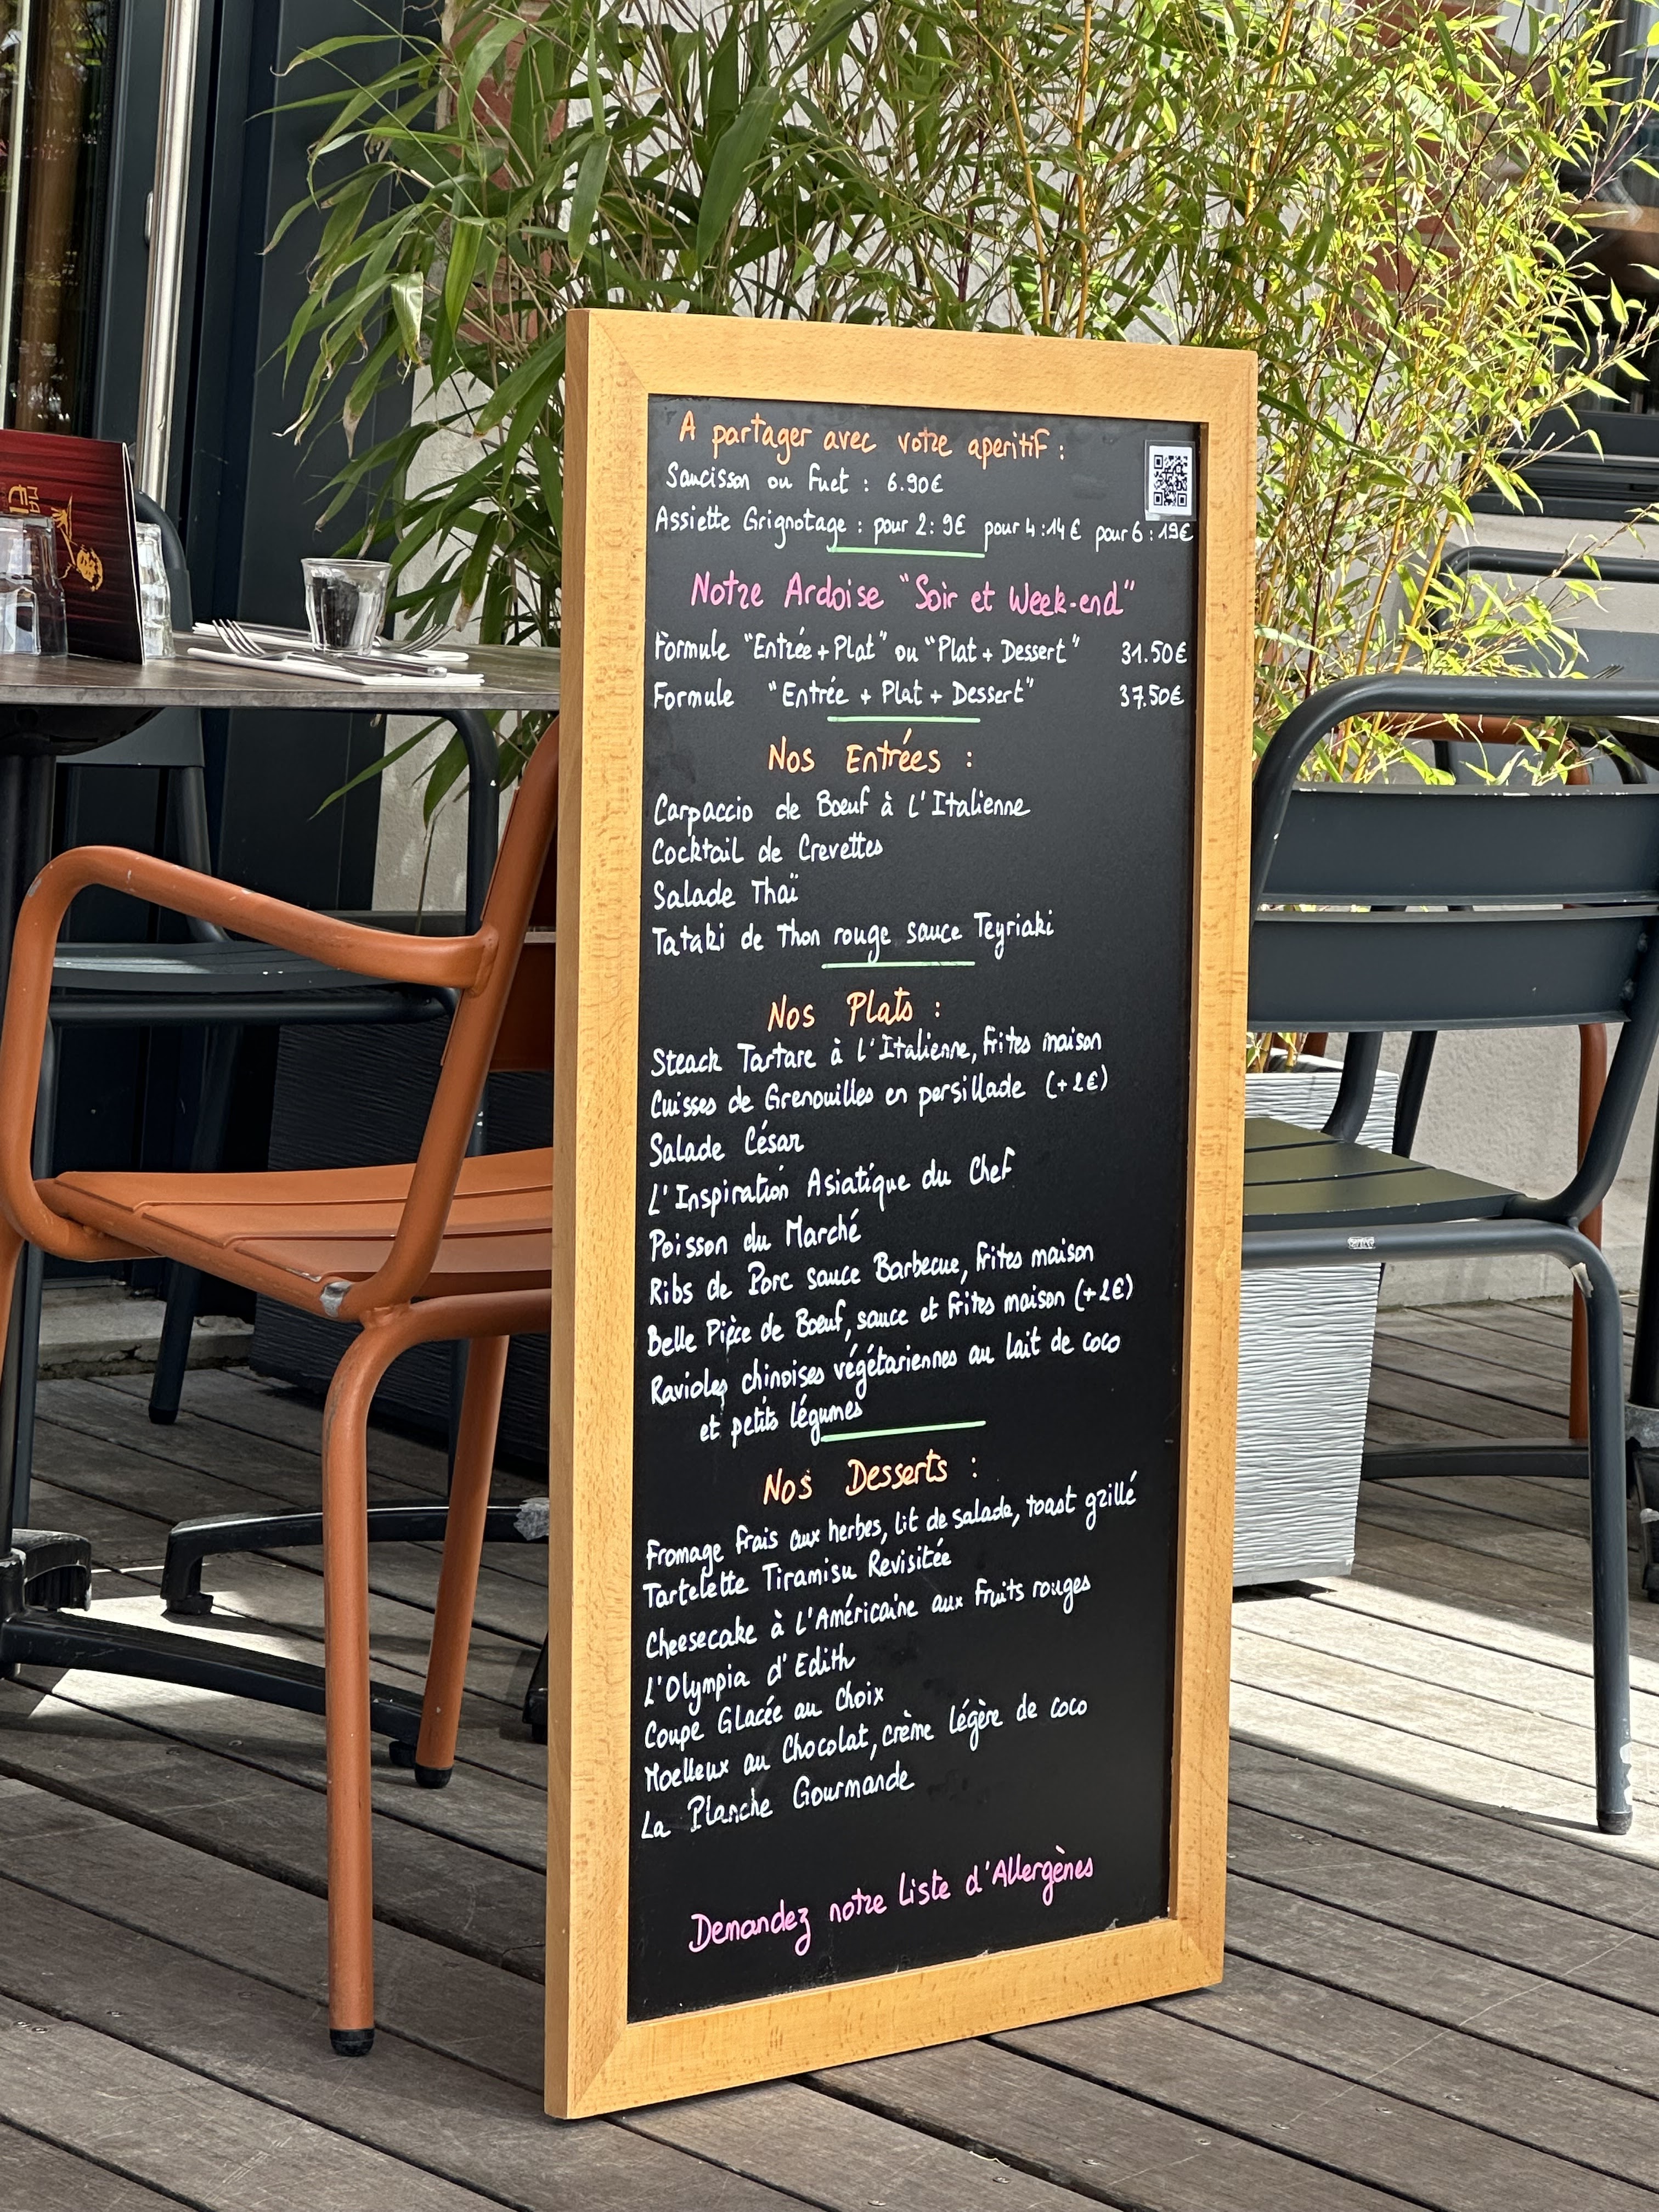 A partager avec votre aperitif :
Saucisson ou Fuet : 6.90€
Assiette Grignotage : pour 2 : 9€ pour 4 : 14€ pour 6 : 19€
Notre Ardoise "Soir et Week-end"
Formule "Entrée + Plat" ou "Plat + Dessert" 31.50€
Formule "Entrée + Plat + Dessert" 37.50€
Nos Entrées :
Carpaccio de Boeuf à L'Italienne
Cocktail de Crevettes
Salade Thaï
Tataki de Thon rouge sauce Teyriaki
Nos Plats :
Steack Tartare à L'Italienne, frites maison
Cuisses de Grenouilles en persillade (+2€)
Salade César
L'Inspiration Asiatique du Chef
Poisson du Marché
Ribs de Porc sauce Barbecue, frites maison
Belle Pièce de Boeuf, sauce et frites maison (+2€)
Ravioles chinoises végétariennes au lait de coco
et petits légumes
Nos Desserts :
Fromage frais aux herbes, lit de salade, toast grillé
Tartelette Tiramisu Revisitée
Cheesecake à L'Américaine aux fruits rouges
L'Olympia d'Edith
Coupe Glacée au Choix
Moelleux au Chocolat, crème légère de coco
La Planche Gourmande
Demandez notre Liste d'Allergènes